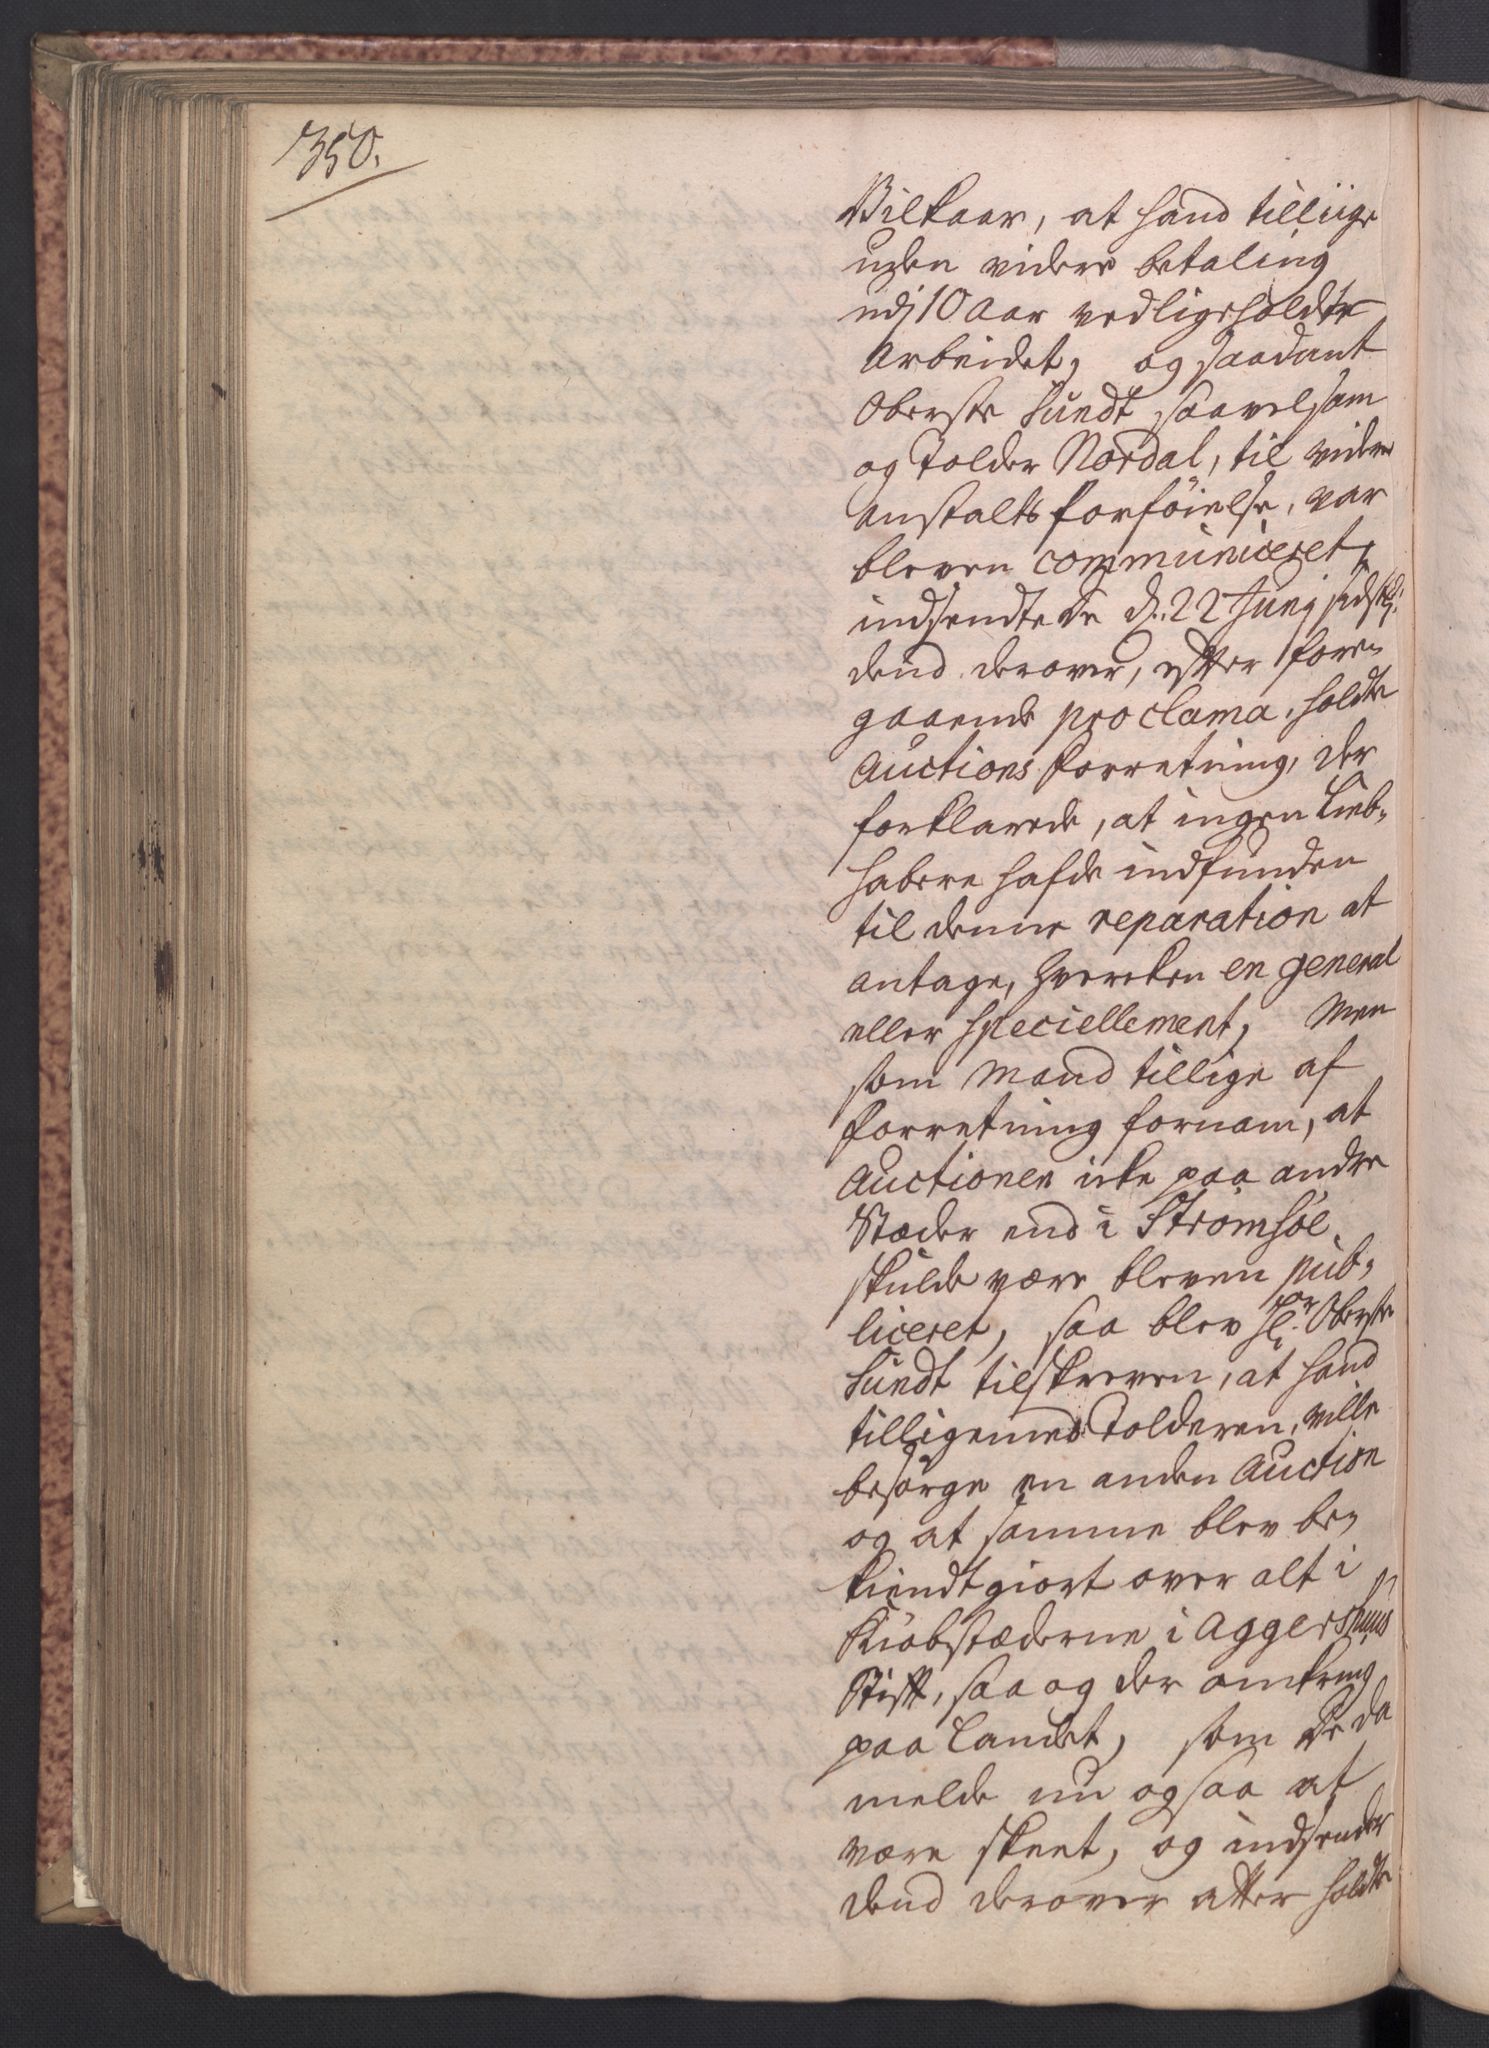 350.
Vilkaar, at hand tilliige
uden videre betaling
udj 10 Aar vedligeholdte
Arbeidet, og saadant
Oberste Sundt saavelsom
og Tolder Nordal, til videre
anstalts forføielse, var
bleven communiceret,
indsendte de d. 22 Junj sidstl:
dend derover, efter fore-
gaaende proclama, holdte
Auctions forretning, der
forklarede, at ingen Lieb-
habere hafde indfunden
til denne reparation at
antage, hvercken en general
eller speciellement, Men
som Mand tillige af
forretning fornam, at
Auctionen icke paa andre
Stæder end i Strømsøe,
skulde være bleven pub-
liceret, saa blev Hr: Oberste
Sundt tilskreven, at hand
tilligemed Tolderen, ville
besørge en anden Auction
og at samme blev be-
kiendtgiort over alt i
Kiøbstæderne i Aggershuus
Stift, saa og der omkring
paa Landet, som De da
melde nu ogsaa at
være skeet, og indsender
dend derover atter holdte